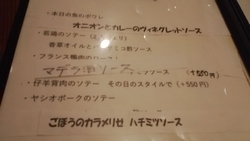 ・本日の魚のポワレ
オニオンとカレーのヴィネグレットソース
・若鶏のソテー
香草オイルと
・フランス鴨
マデラ酒ソース
・仔羊背肉のソテー その日のスタイルで（+550円）
・ヤシオポークのソテー
ごぼうのカラメリゼ ハチミツソース